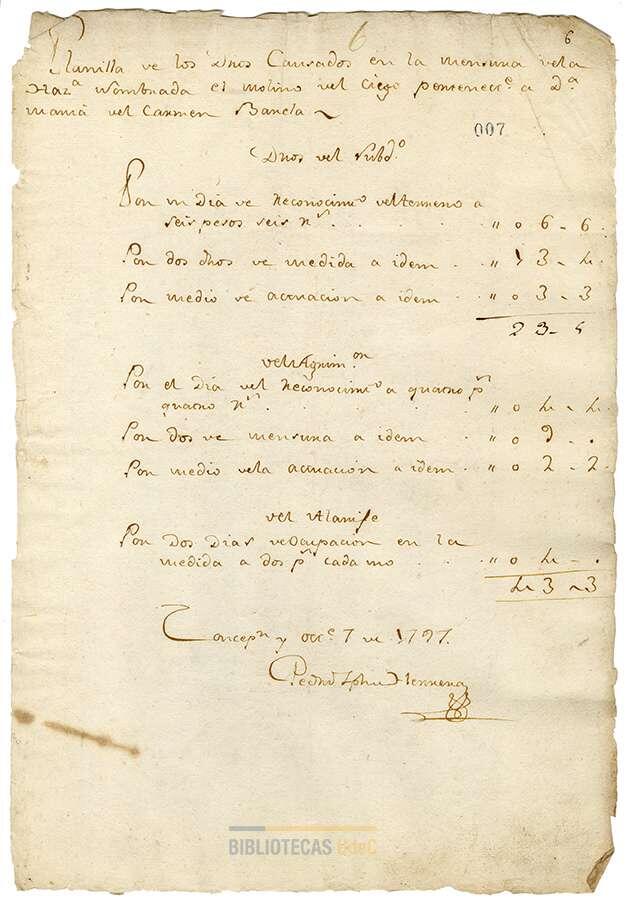 6
6
Planilla de los Dros Causados en la mensura dela
Haz.ª nombrada el molino del Ciego pertenect.e a D.ª
maria del Carmen Barela
007
Dros del Subd.o
Por un dia de reconocim.to del terreno a
seis pesos seis r.s . . . . . " 0 6 - 6
Por dos dhos de medida a idem . . " 1 3 - 4
Por medio de actuacion a idem . . " 0 3 - 3
23 - 5
del Agrim.on
Por el dia del reconocim.to a quatro p.s
quatro r.s . . . . . " 0 4 - 4
Por dos de mensura a idem . . " 0 9 - .
Por medio dela actuacion a idem . " 0 2 - 2
del Alarife
Por Dos Dias de Ocupacion en la
medida a dos p.s cada uno . . " 0 4 - .
43 - 3
Concep.n y Oct.e 7 de 1797.
Pedro Jphe Herrera
BIBLIOTECAS UdeC